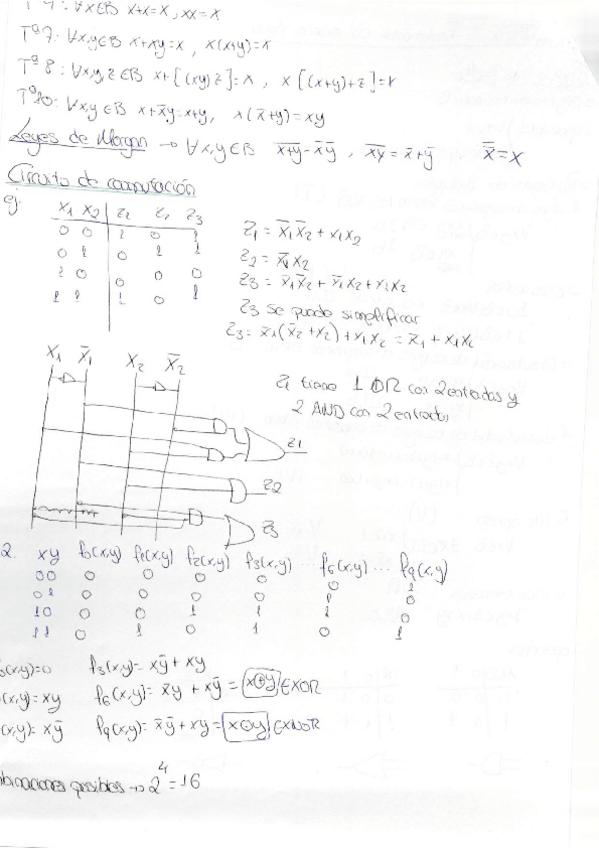 ∀x∈B x+x=x, xx=x
Tª7: ∀x,y∈B x+xy=x, x(x+y)=x
Tª8: ∀x,y,z∈B x+[(xy)z]=x, x[(x+y)+z]=x
Tª10: ∀x,y∈B x+x̄y=x+y, x(x̄+y)=xy
Leyes de Morgan → ∀x,y∈B \overline{x+y}=x̄ȳ, \overline{xy}=x̄+ȳ \overline{x̄}=x
Circuito de conmutación
ej:
X1 X2 Z1 Z2 Z3
0 0 1 0 1
0 1 0 1 1
1 0 0 0 0
1 1 1 0 1
Z1 = x̄1x̄2 + x1x2
Z2 = x̄1x2
Z3 = x̄1x̄2 + x̄1x2 + x1x2
Z3 se puede simplificar
Z3 = x̄1(x̄2+x2) + x1x2 = x̄1 + x1x2
X1 X̄1 X2 X̄2
Z1 tiene 1 OR con 2 entradas y
2 AND con 2 entradas
Z1
Z2
Z3
2. xy f0(x,y) f1(x,y) f2(x,y) f3(x,y) ... f6(x,y) ... f9(x,y)
00 0 0 0 0 0 1
01 0 0 0 0 1 0
10 0 0 1 1 1 0
11 0 1 0 1 0 1
(x,y)=0 f3(x,y)= xȳ + xy
(x,y)= xy f6(x,y)= x̄y + xȳ = x⊕y, EXOR
(x,y)= xȳ f9(x,y)= x̄ȳ + xy = x⊙y, EXNOR
binaciones posibles → 2^4 = 16